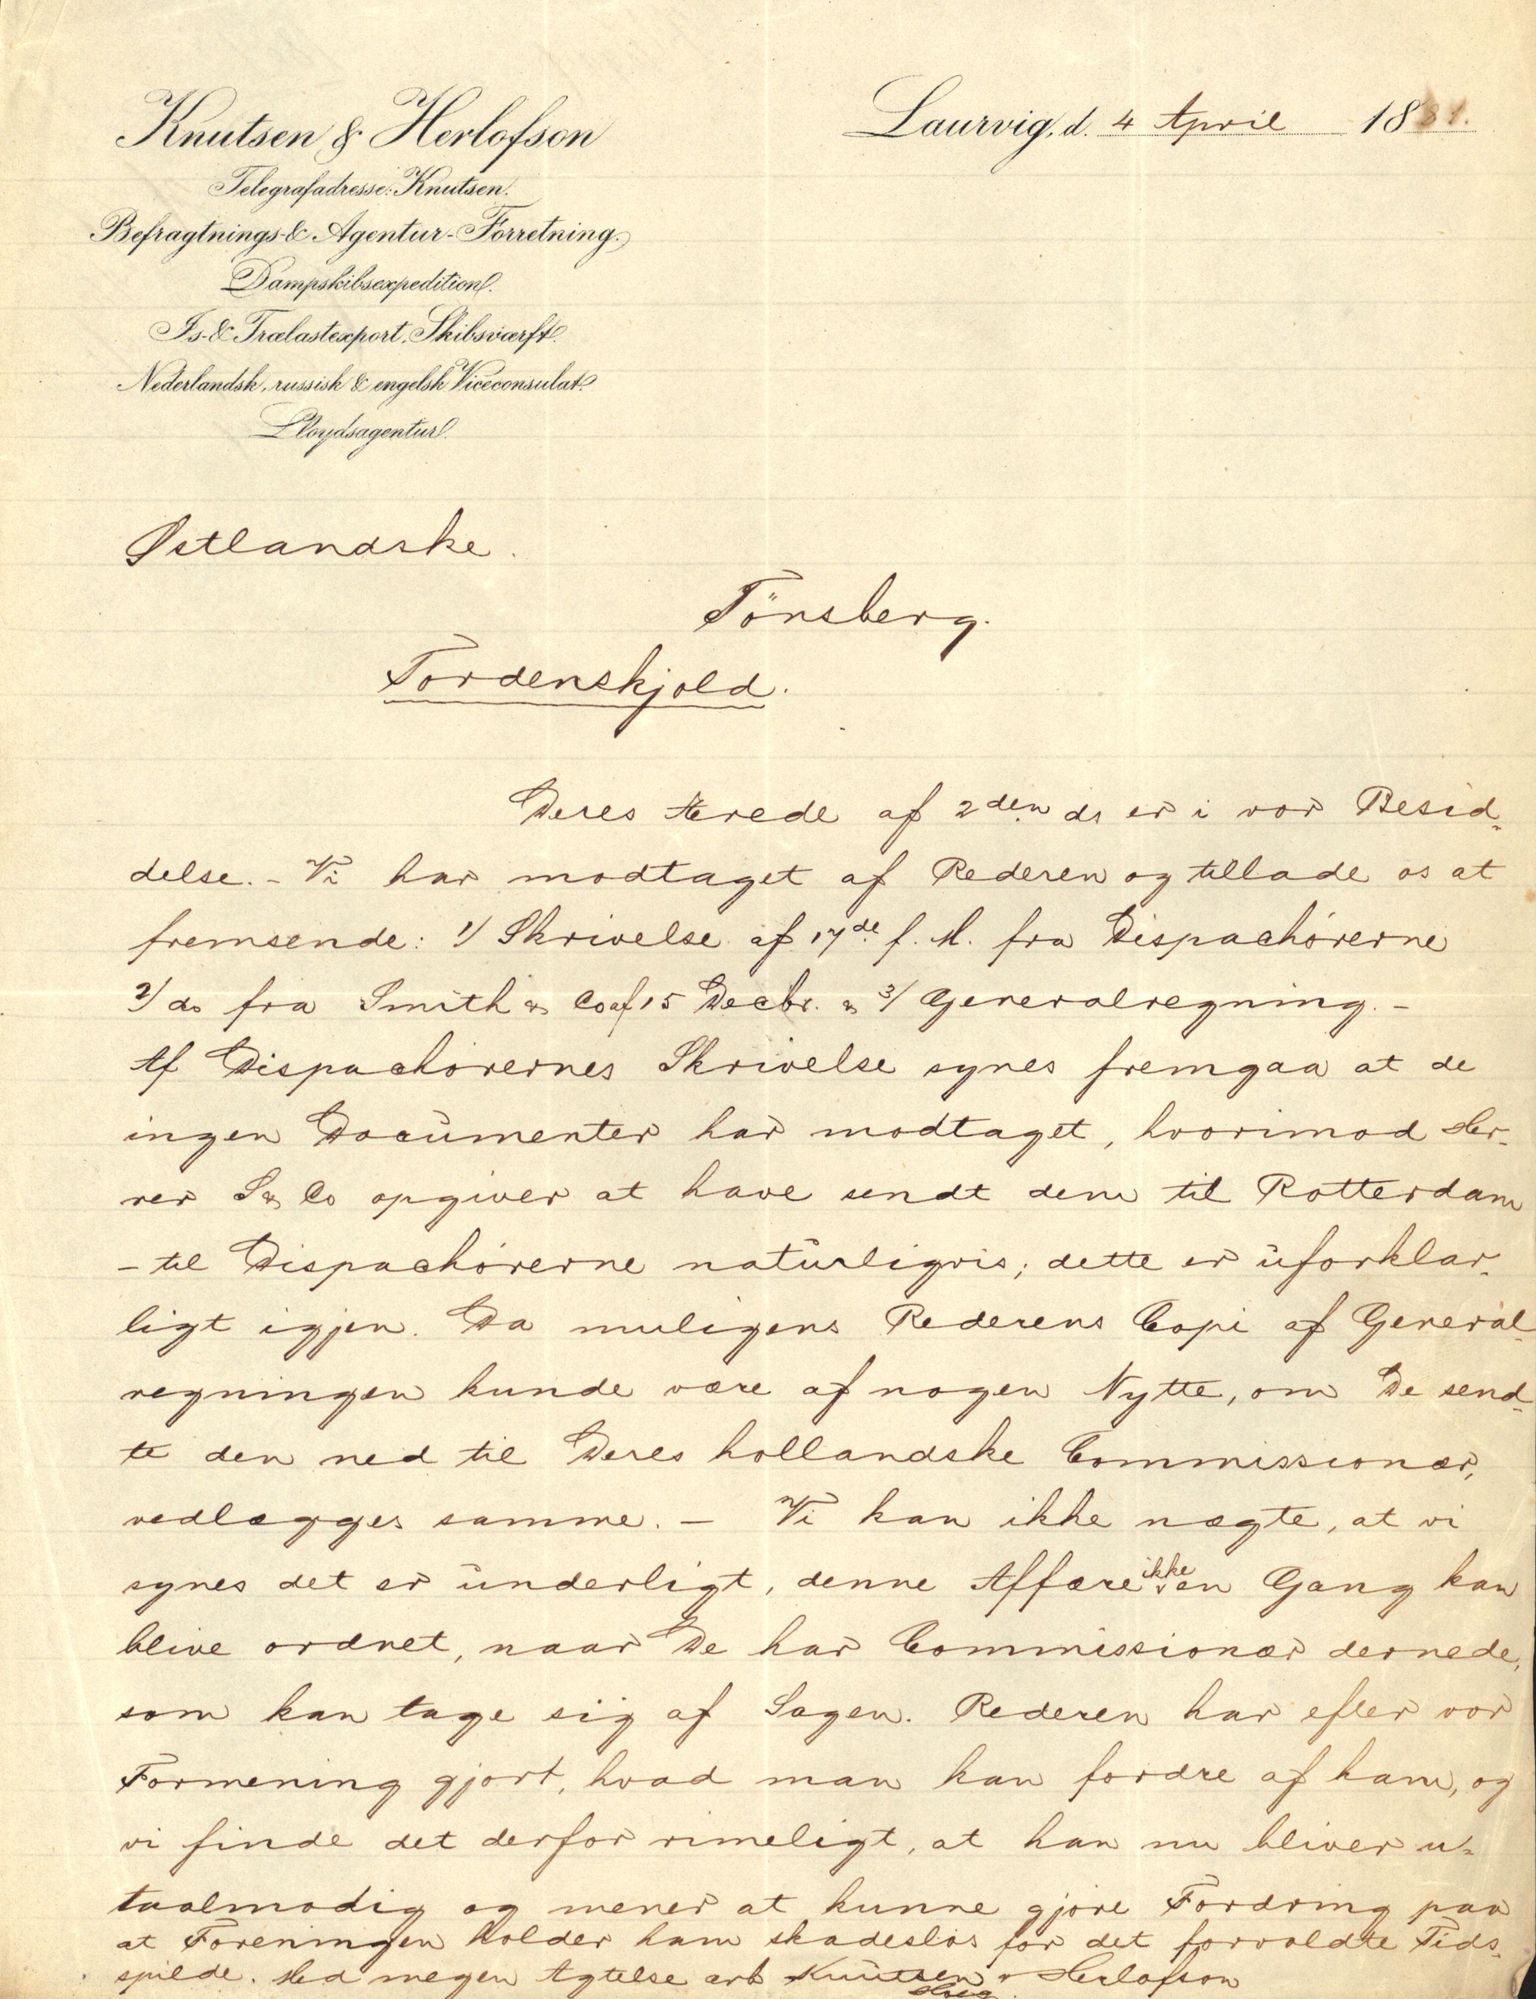 Knutsen & Herlofson
Laurvig, d. 4 April 1881.
Telegrafadresse: Knutsen.
Befragtnings- & Agentur-Forretning.
Dampskibsexpedition.
Is- & Trælastexport, Skibsværft.
Nederlandsk, russisk & engelsk Viceconsulat.
Lloydsagentur.
Østlandske.
Tönsberg.
Tordenskjold.
Deres Ærede af 2den ds er i vor Besid-
delse. - Vi har modtaget af Rederen og tillade os at
fremsende: 1/ Skrivelse af 17de f. M. fra Dispachörerne
2/ do fra Smith & Co af 15 Decbr. & 3/ Generalregning. -
Af Dispachörernes Skrivelse synes fremgaa at de
ingen Documenter har modtaget, hvorimod Her-
rer S & Co opgiver at have sendt dem til Rotterdam
- til Dispachörerne naturligvis; dette er uforklar-
ligt igjen. Da muligens Rederens Copi af General-
regningen kunde være af nogen Nytte, om De send-
te den ned til Deres hollandske Commissionær,
vedlægges samme. - Vi kan ikke nægte, at vi
synes det er underligt, denne Affære ikke en Gang kan
blive ordnet, naar De har Commissionær dernede,
som kan tage sig af Sagen. Rederen har efter vor
Formening gjort, hvad man kan fordre af ham, og
vi finde det derfor rimeligt, at han nu bliver u-
taalmodig og mener at kunne gjøre Fordring paa
at Foreningen holder ham skadesløs for det forvoldte Tids-
spilde. Med megen Agtelse arb Knutsen & Herlofson